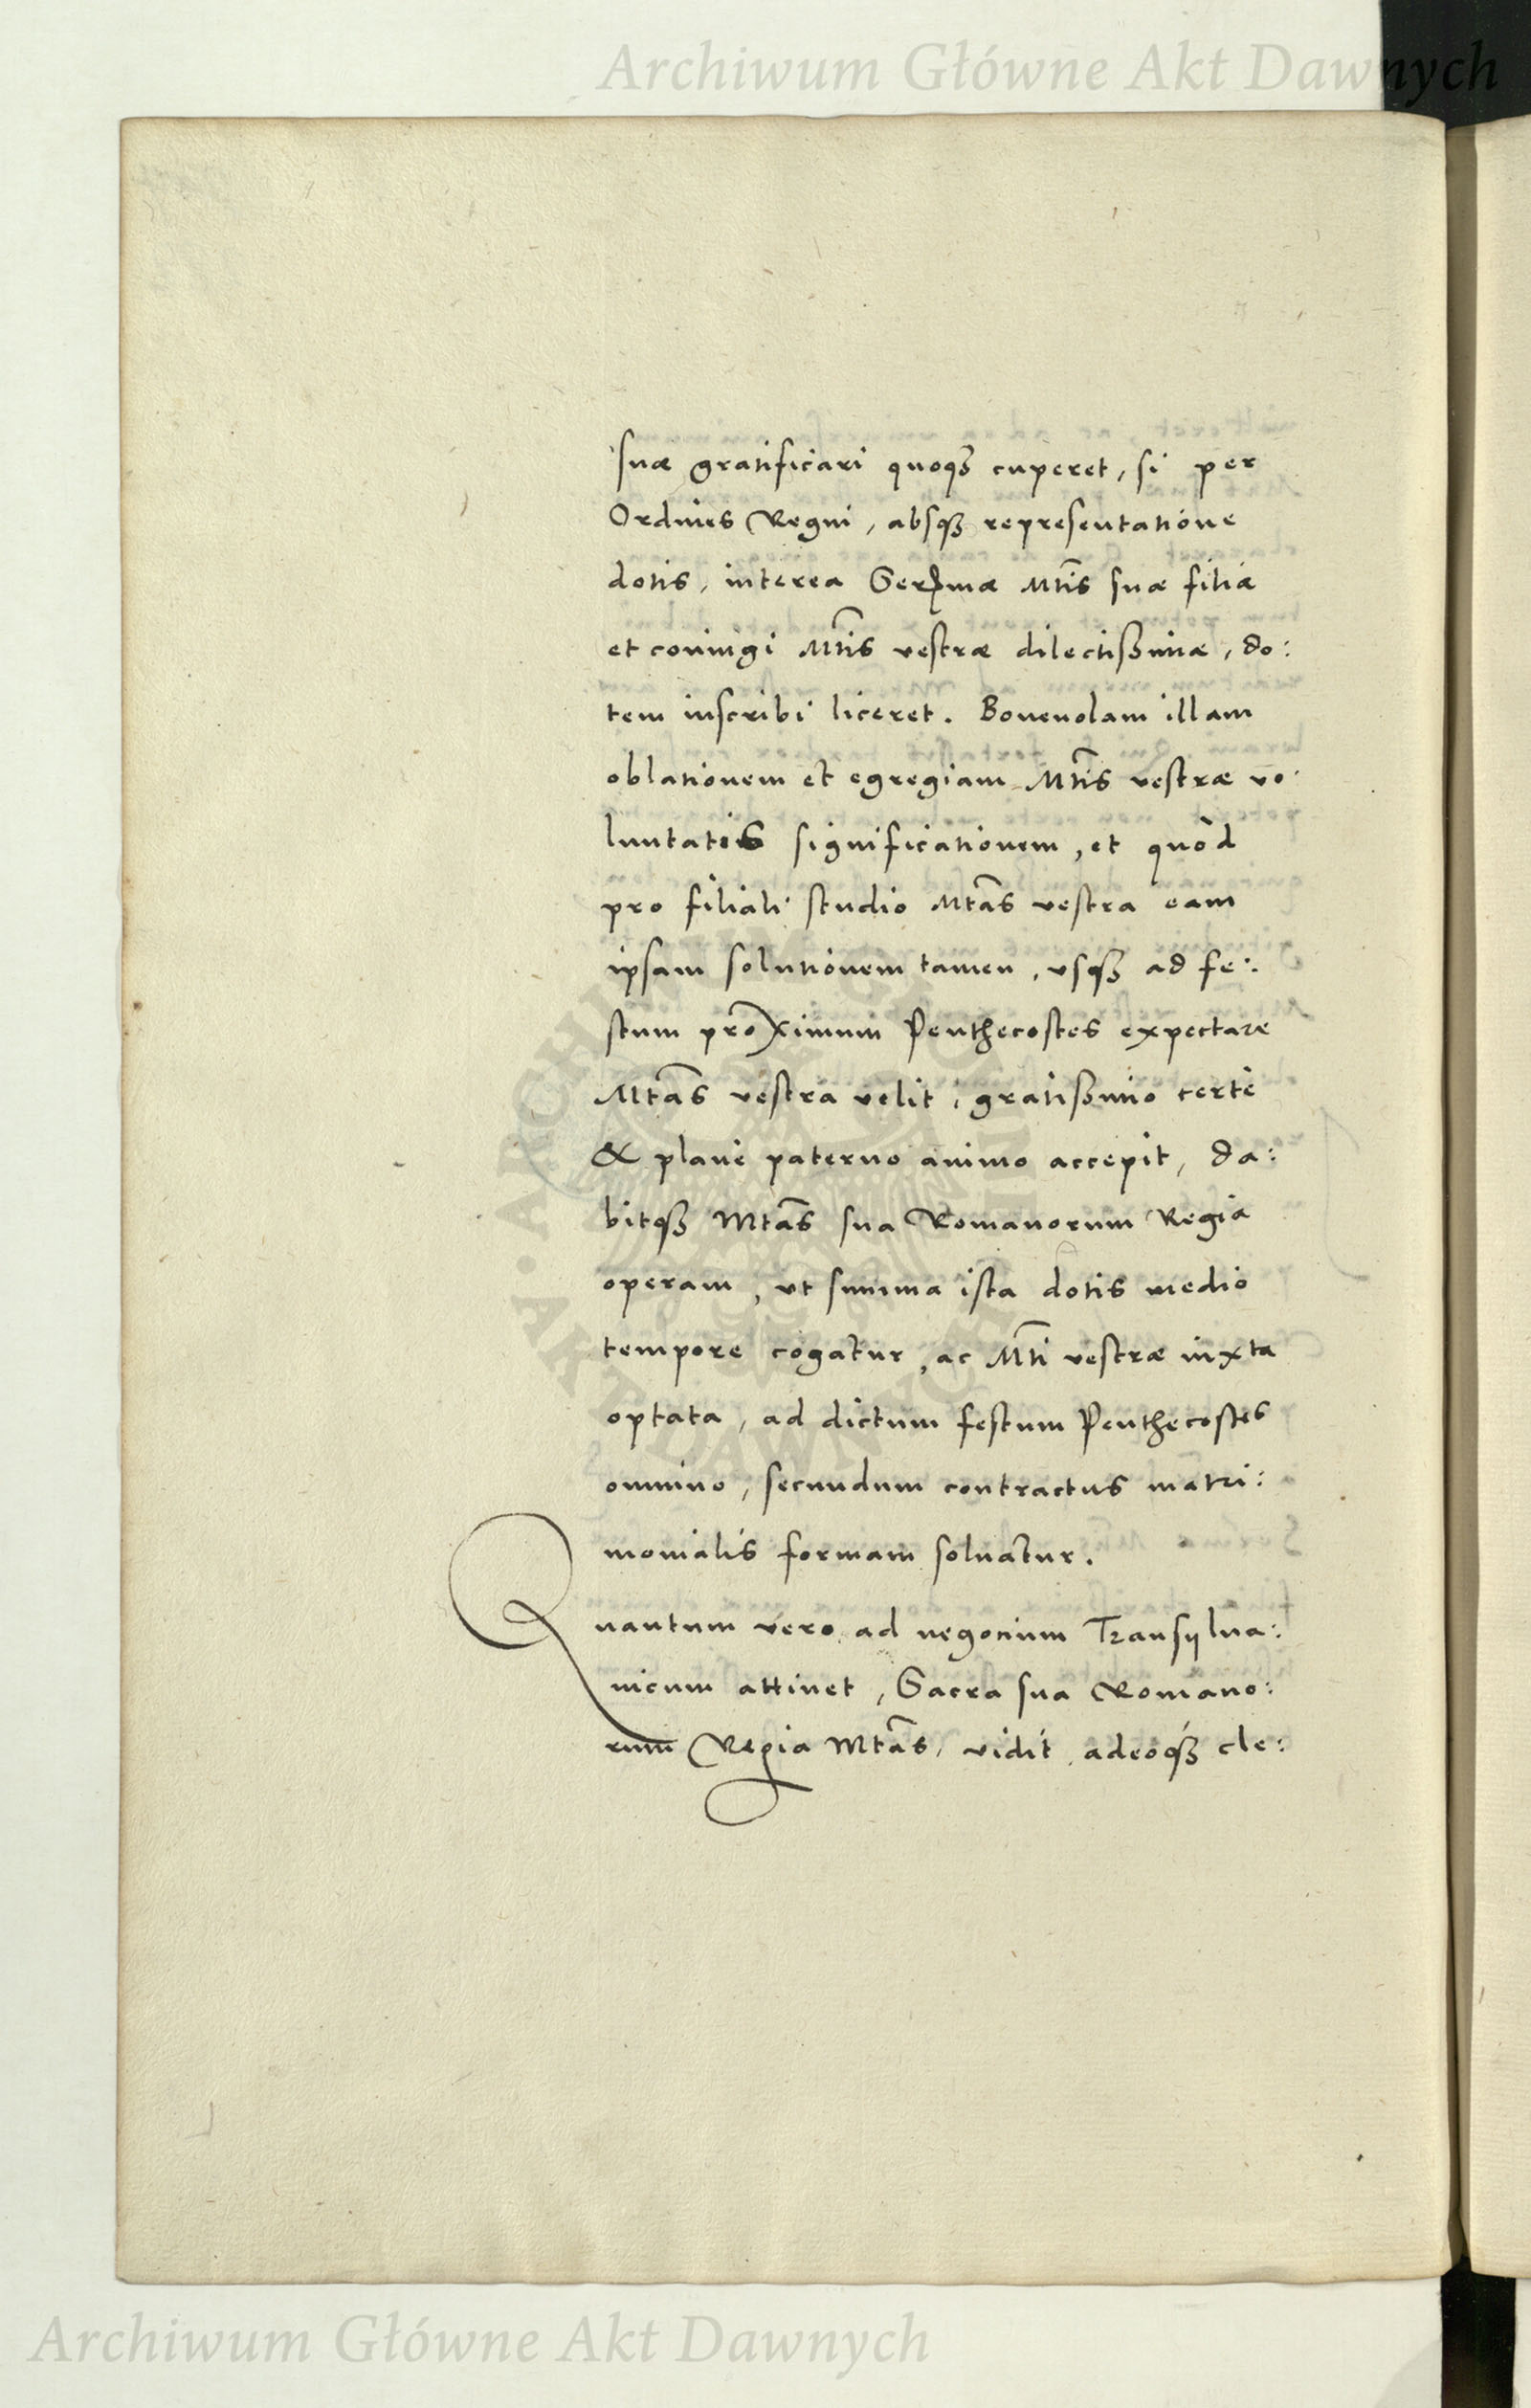 Archiwum Główne Akt Dawnych
suæ gratificari quoqȝ cuperet, si per
Ordines Regni, absqȝ representatione
dotis, interea Serᵐæ Mtis suæ filiæ
et coniugi Mtis vestræ dilectissimæ, do:
tem inscribi liceret. Bonenolam illam
oblationem et egregiam Mtis vestræ vo:
luntatis significationem, et quòd
pro filiali studio Mtas vestra eam
ipsam solutionem tamen, vsqȝ ad fe:
stum proximum Penthecostes expectare
Mtas vestra velit, gratissimo certè
& planè paterno animo accepit, da:
bitqȝ Mtas sua Romanorum Regia
operam, vt summa ista dotis medio
tempore cogatur, ac Mti vestræ iuxta
optata, ad dictum festum Penthecostes
omnino, secundum contractus matri:
monialis formam soluatur.
Quantum vero ad negotium Transylua:
nicum attinet, Sacra sua Romano:
rum Regia Mtas, vidit adeoqȝ cle:
ARCHIWUM GŁÓWNE
AKT DAWNYCH
Archiwum Główne Akt Dawnych